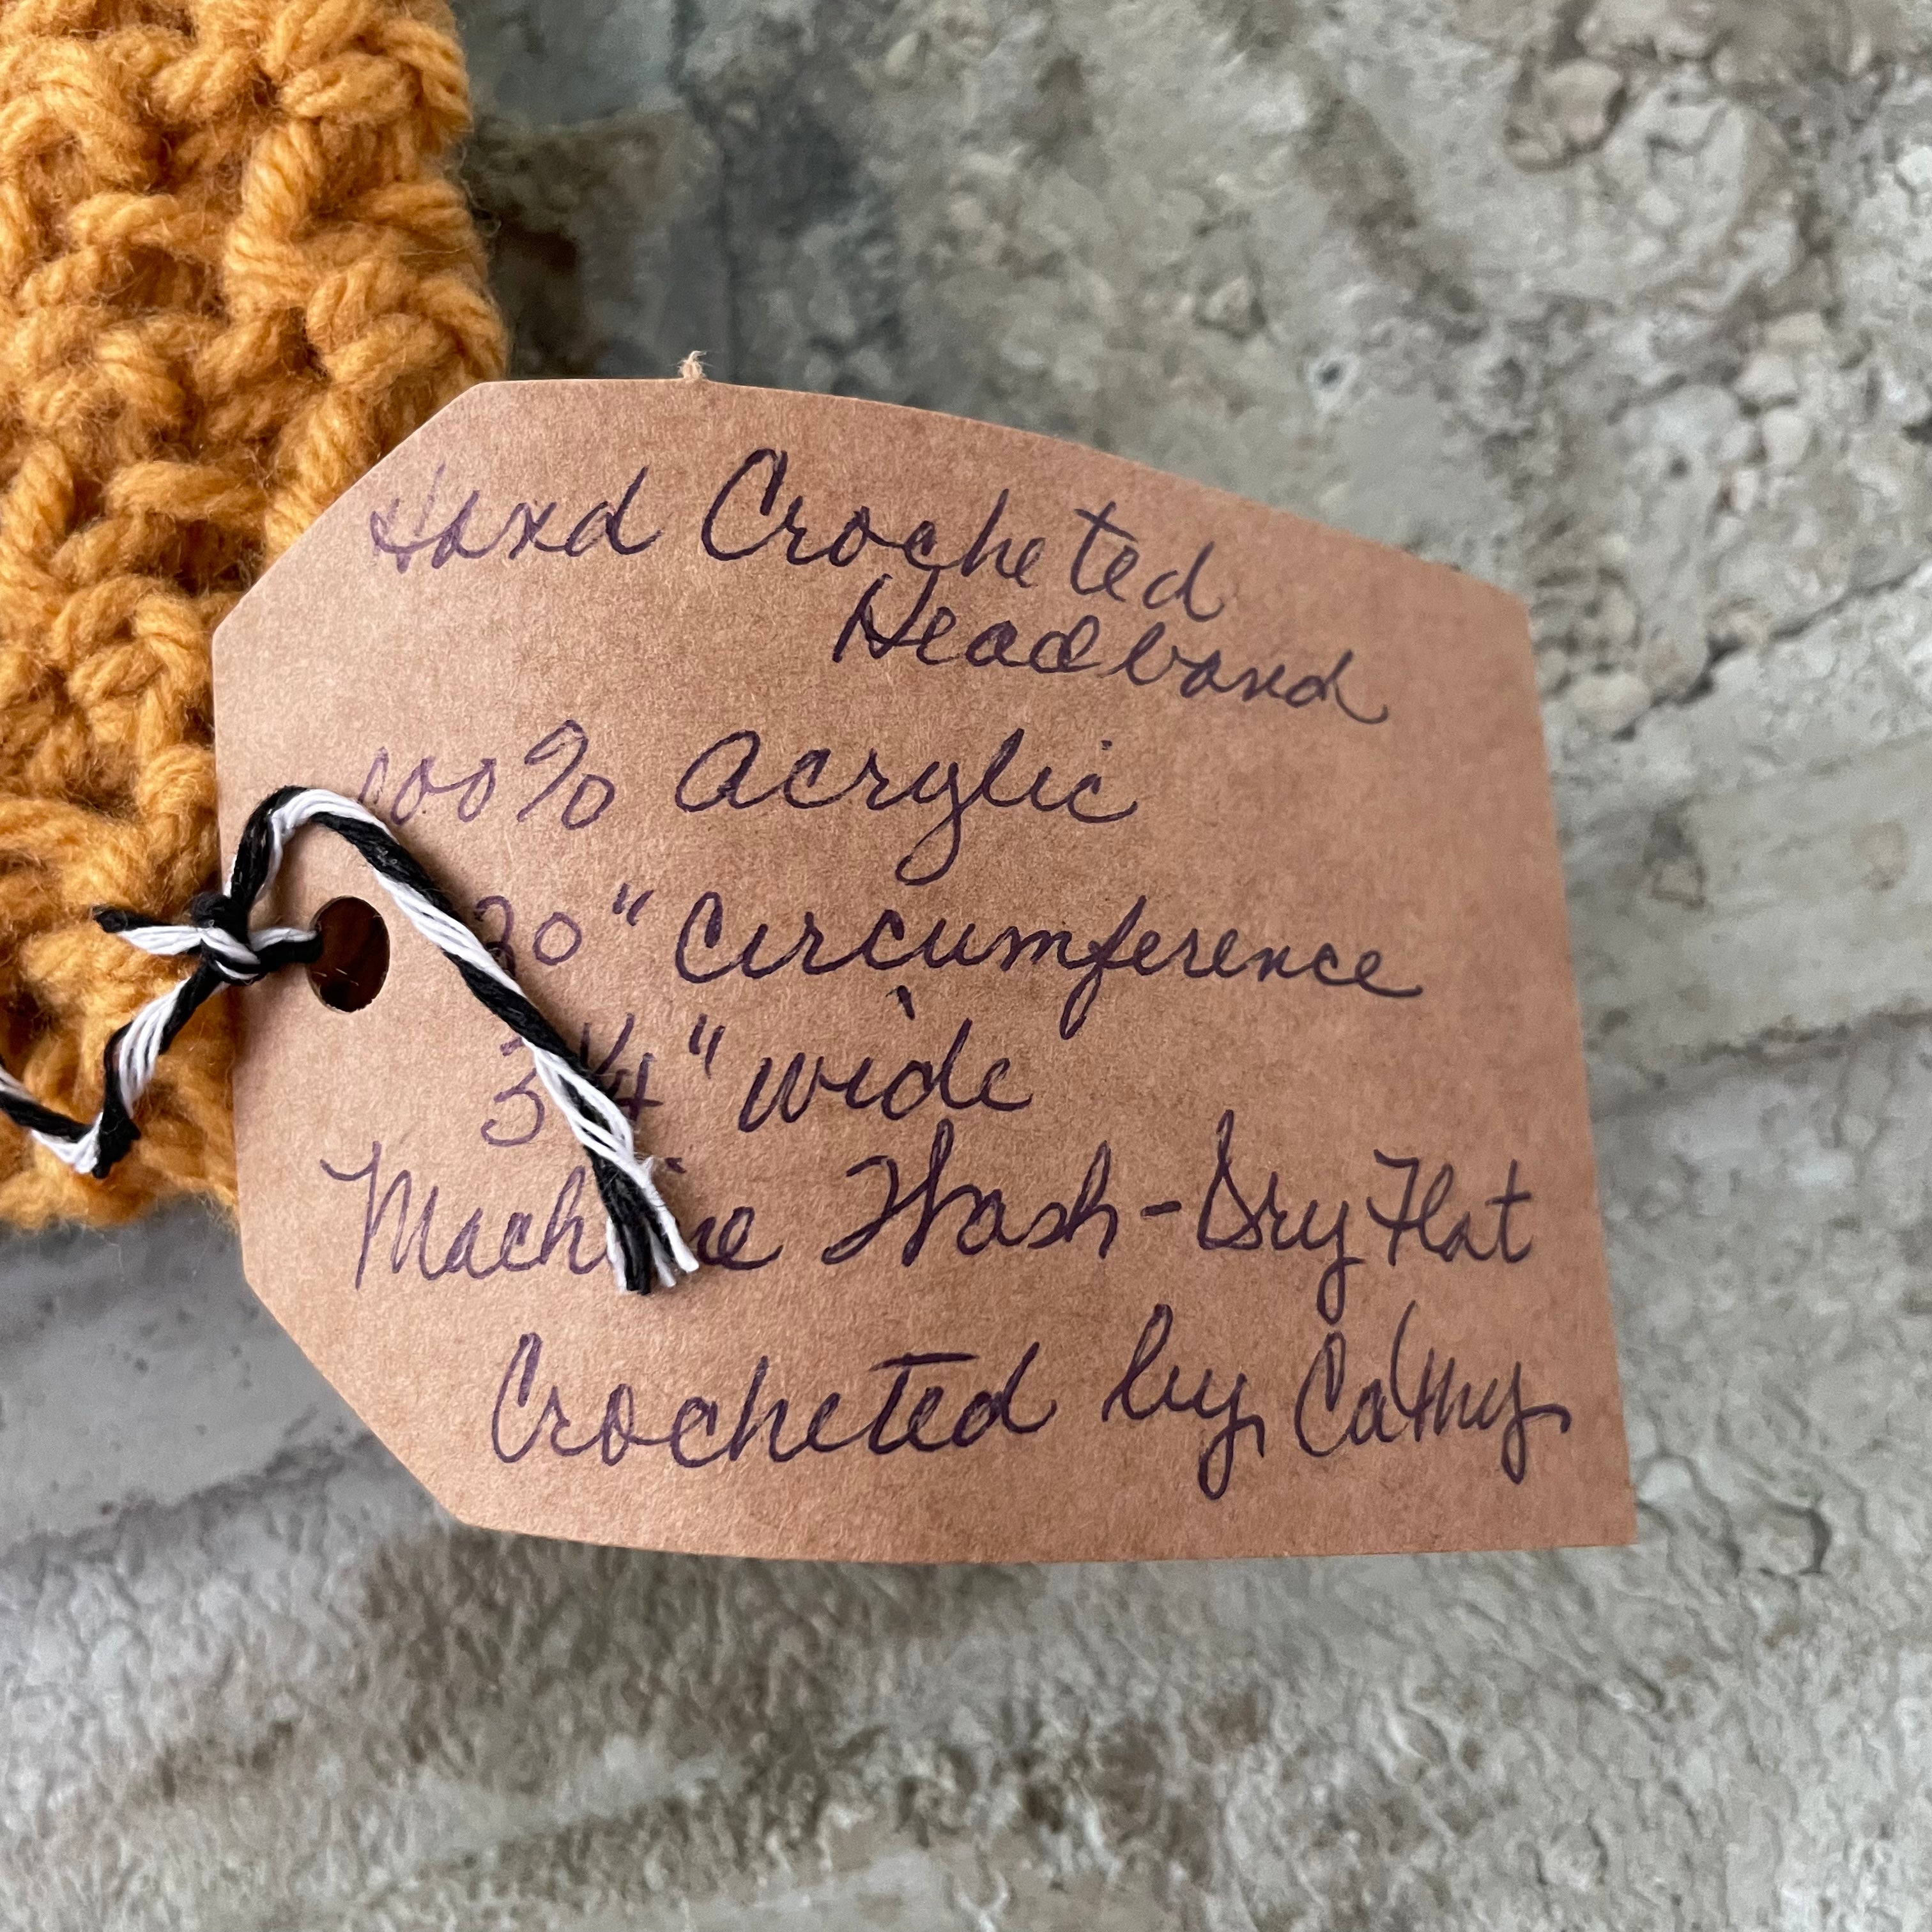 Hand Crocheted
Headband
100% Acrylic
20" Circumference
3 1/4" wide
Machine Wash-Dry Flat
Crocheted by Cathy